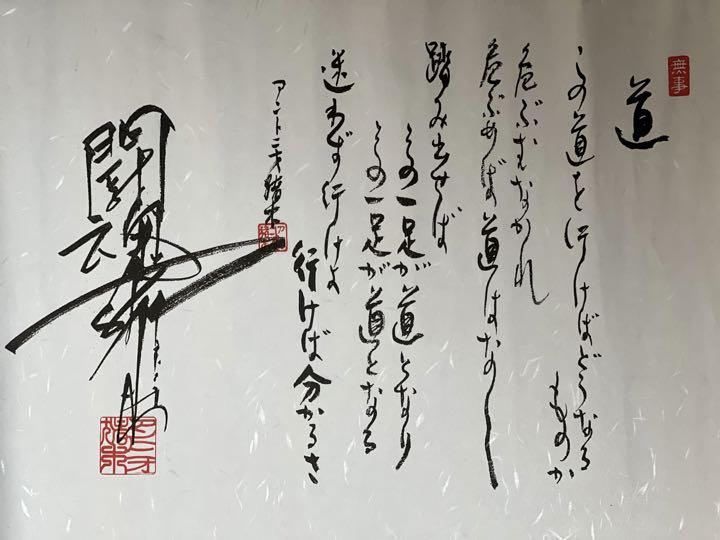 無事
道
この道を行けばどうなる
ものか
危ぶむなかれ
危ぶめば道はなし
踏み出せば
その一足が道となり
その一足が道となる
迷わず行けよ
行けば分かるさ
アントニオ猪木
闘魂